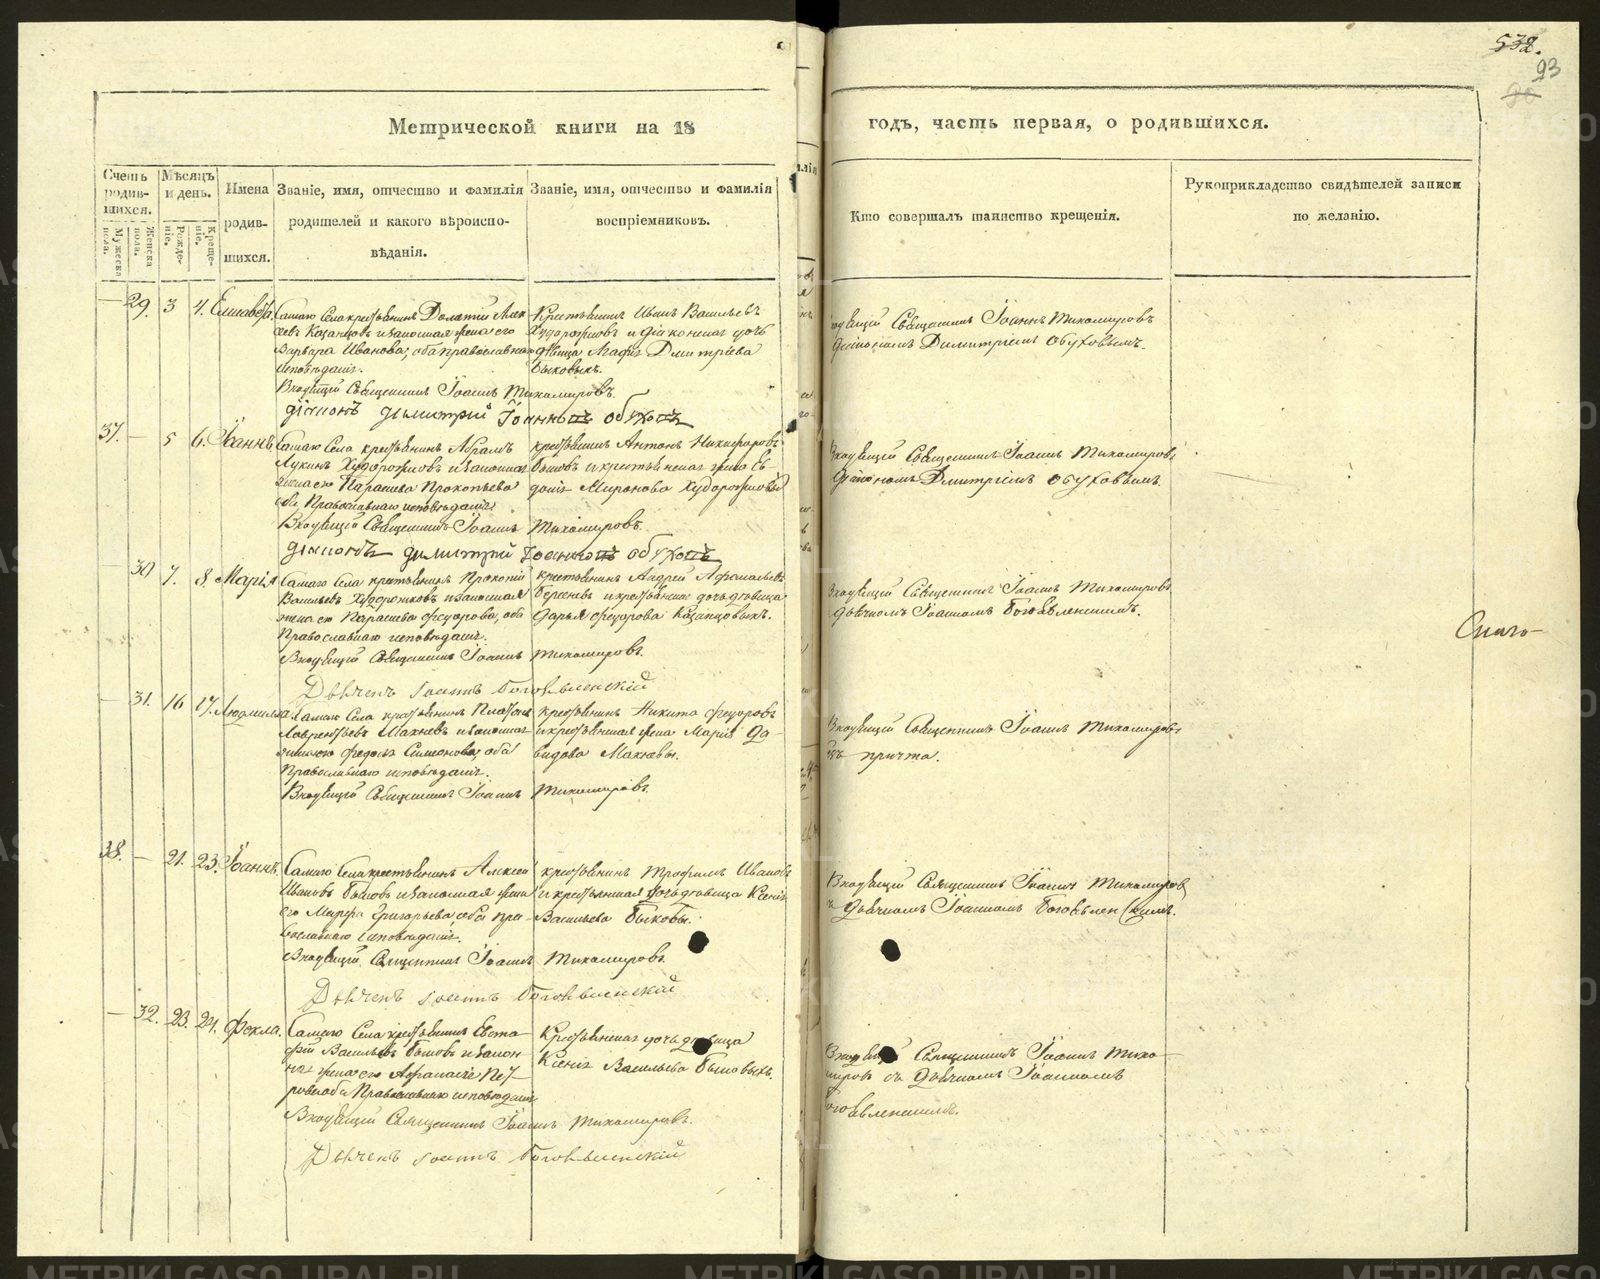 532.
93
90
Метрической книги на 18
годъ, часть первая, о родившихся.
Счетъ родив-шихся.
Мужеска пола.
Женска пола.
Мѣсяцъ и день.
Рожде-ніе.
Креще-ніе.
Имена родив-шихся.
Званіе, имя, отчество и фамилія
родителей и какого вѣроиспо-
вѣданія.
Званіе, имя, отчество и фамилія
воспріемниковъ.
Кто совершалъ таинство крещенія.
Рукоприкладство свидѣтелей записи
по желанію.
— 29. 3 4. Елисавета.
Самаго Села крестьянинъ
Казанцовъ и законная жена его
Варвара Иванова, оба православнаго
исповѣданія.
Крестьянинъ Иванъ Васильевъ
Худорожковъ и діаконская дочь
дѣвица Дмитріева
Быковыхъ.
Входящій Священникъ Іоаннъ Тихомировъ.
діаконъ димитрій Іоанновъ обуховъ
Священникъ Іоаннъ Тихомировъ
Діакономъ Димитріемъ Обуховымъ.
37. — 5 6. Іоаннъ
Самаго Села крестьянинъ Абрамъ
Лукинъ Худорожковъ и законная
жена его Парасковья Прокопьева
оба Православнаго исповѣданія
крестьянинъ Антонъ Никифоровъ
Быковъ и крестьянская жена Ев-
докія Миронова Худорожкова
Входящій Священникъ Іоаннъ Тихомировъ.
діаконъ димитрій Іоанновъ обуховъ
Входящій Священникъ Іоаннъ Тихомировъ
Діакономъ Дмитріемъ Обуховымъ.
— 30 7. 8. Марія
Самаго Села крестьянинъ Прокопій
Васильевъ Худорожковъ и законная
жена его Парасковья Федорова, оба
Православнаго исповѣданія.
крестьянинъ Андрей Афанасьевъ
и крестьянская дочь дѣвица
Дарья Федорова Казанцовыхъ.
Входящій Священникъ Іоаннъ Тихомировъ.
Дьячекъ Іоаннъ Богоявленскій
Входящій Священникъ Іоаннъ Тихомировъ
дьячкомъ Іоанномъ Богоявленскимъ.
— 31. 16 17. Людмилла.
Самаго Села крестьянинъ Платонъ
Лаврентьевъ Махневъ и законная
Федосья Симеонова, оба
Православнаго исповѣданія.
крестьянинъ Никита Федоровъ
и крестьянская жена Марія Да-
видова Махневы.
Входящій Священникъ Іоаннъ Тихомировъ.
Входящій Священникъ Іоаннъ Тихомировъ
причта.
38. — 21. 23. Іоаннъ.
Самаго Села крестьянинъ Алексей
Ивановъ Быковъ и законная жена
его Марфа Григорьева оба пра-
вославнаго исповѣданія.
крестьянинъ Трофимъ Ивановъ
и крестьянская дочь дѣвица Ксенія
Васильева Быковы.
Входящій Священникъ Іоаннъ Тихомировъ.
Дьячекъ Іоаннъ Богоявленскій
Входящій Священникъ Іоаннъ Тихомировъ
дьячкомъ Іоанномъ Богоявленскимъ.
— 32. 23. 24. Фекла.
Самаго Села крестьянинъ Евста-
фій Васильевъ Быковъ и закон-
ная жена его Афанасія Пет-
рова оба Православнаго исповѣданія
Крестьянская дочь дѣвица
Ксенія Васильева Быковыхъ.
Входящій Священникъ Іоаннъ Тихомировъ.
Дьячекъ Іоаннъ Богоявленскій
Входящій Священникъ Іоаннъ Тихо-
мировъ съ Дьячкомъ Іоанномъ
Богоявленскимъ.
METRIKI.GASO-URAL.RU